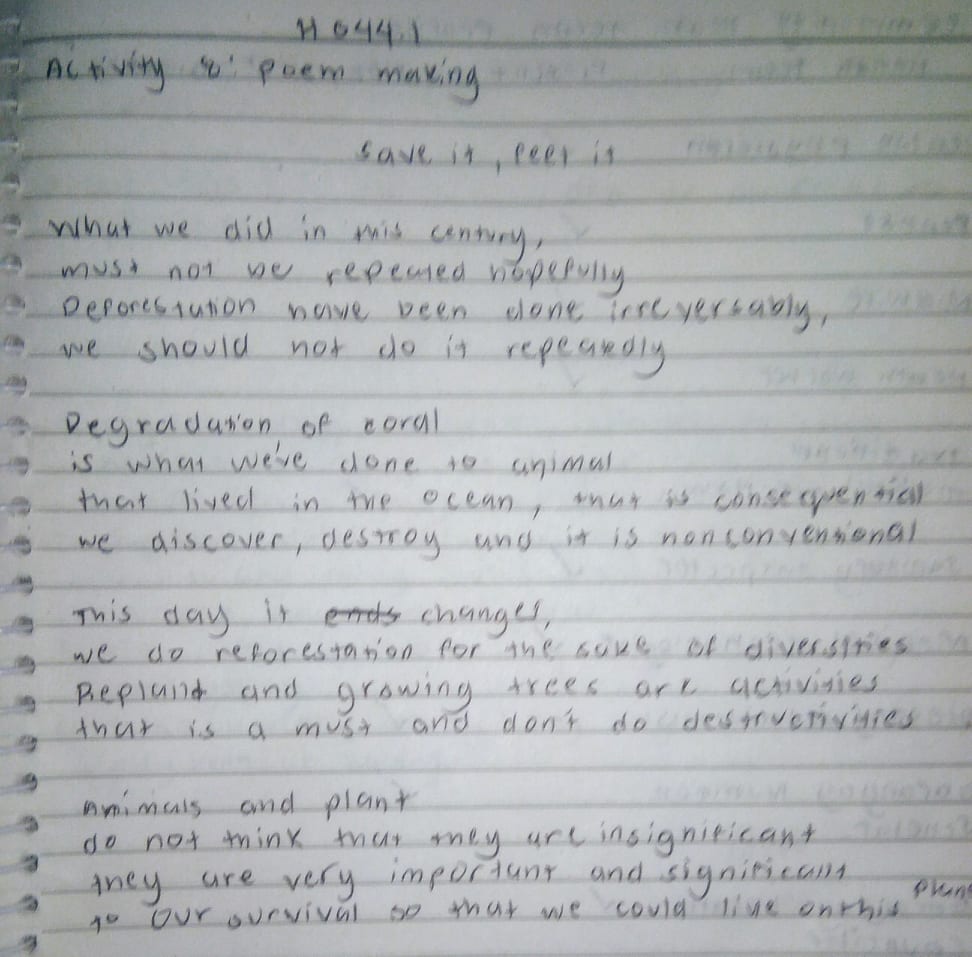 HG44.1
Activity 8: poem making
save it, feel it
What we did in this century,
must not be repeated hopefully
Deforestation have been done irreversably,
we should not do it repeatedly
Degradation of coral
is what we've done to animal
that lived in the ocean, that is consequential
we discover, destroy and it is nonconventional
This day it ends changes,
we do reforestation for the sake of diversities
Replant and growing trees are activities
that is a must and don't do destructivities
Animals and plant
do not think that they are insignificant
they are very important and significant
to our survival so that we could live on this